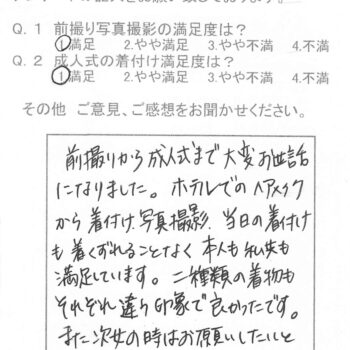 Q.1 前撮り写真撮影の満足度は?
1.満足 2.やや満足 3.やや不満 4.不満
Q.2 成人式の着付け満足度は?
1.満足 2.やや満足 3.やや不満 4.不満
その他 ご意見、ご感想をお聞かせください。
前撮りから成人式まで大変お世話
になりました。ホテルでのヘアメイク
から着付け、写真撮影、当日の着付け
も着くずれることなく本人も私共も
満足しています。二種類の着物も
それぞれ違う印象で良かったです。
また次女の時はお願いしたいと